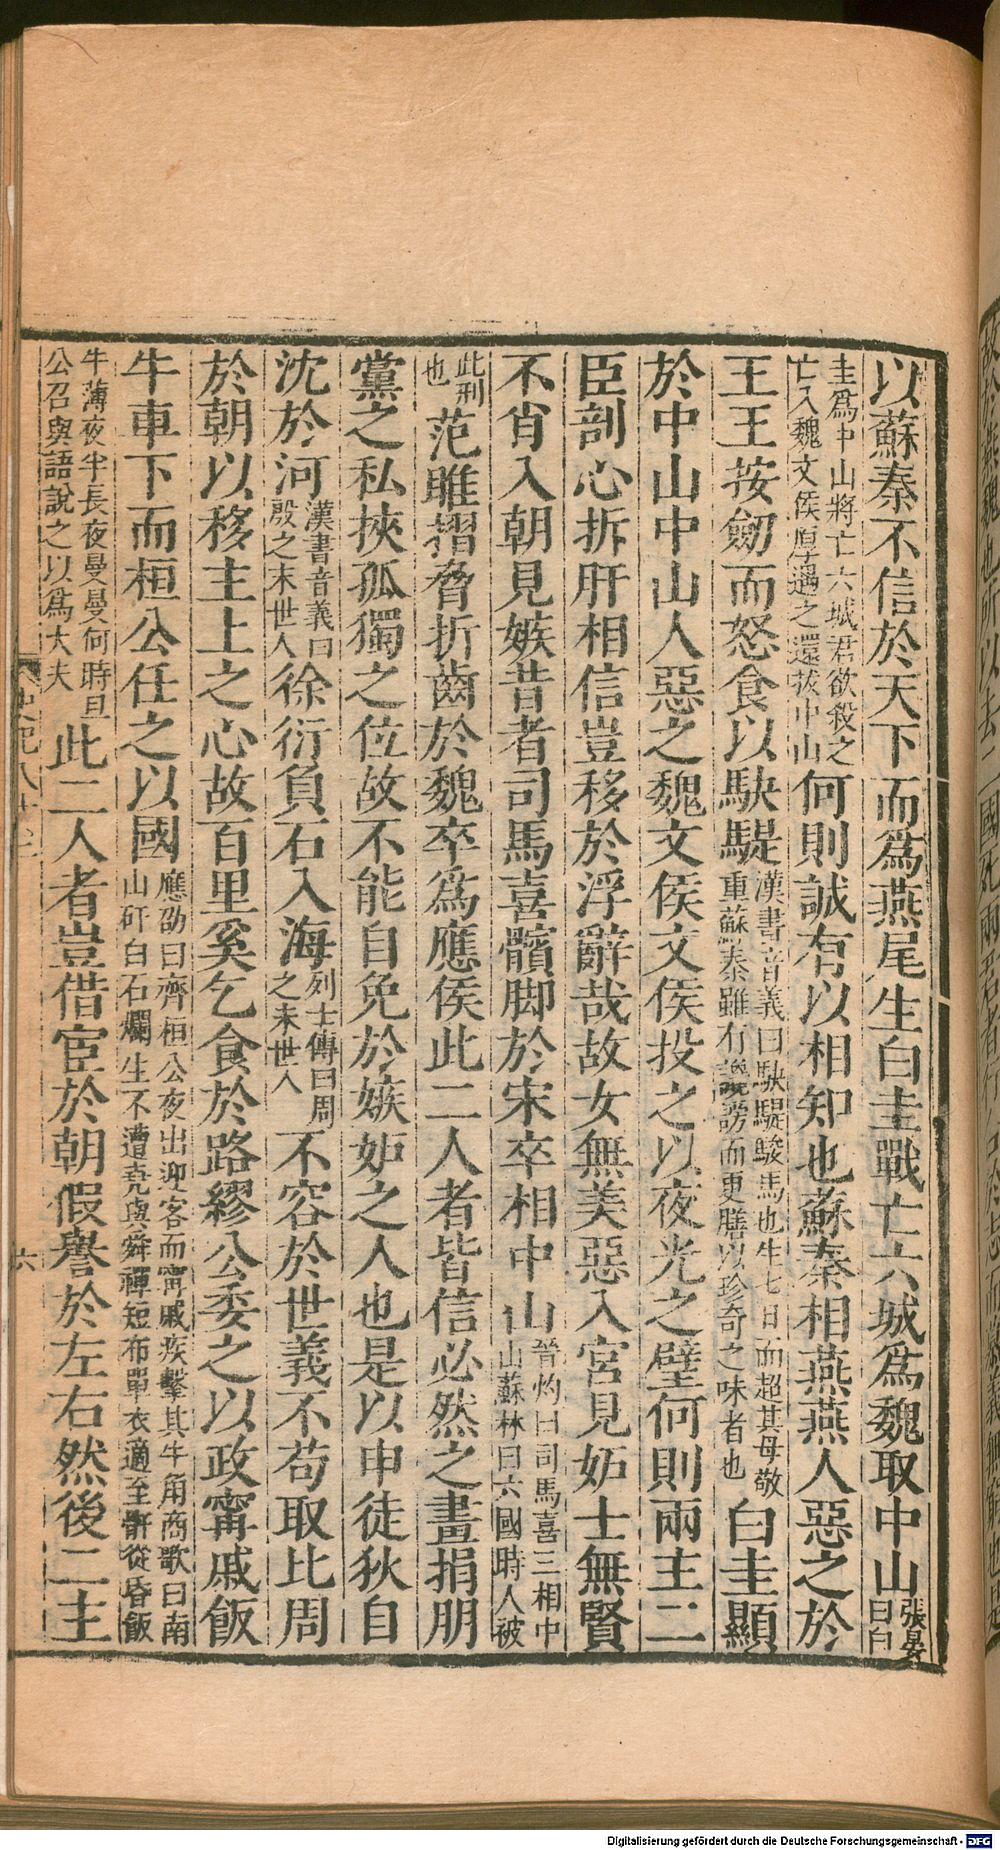 以蘇秦不信於天下而爲燕尾生白圭戰亡六城爲魏取中山張晏曰白
圭爲中山將亡六城君欲殺之亡入魏文侯厚遇之還拔中山何則誠有以相知也蘇秦相燕燕人惡之於
王王按劒而怒食以駃騠漢書音義曰駃騠駿馬也生七日而超其母敬重蘇秦雖有讒謗而更膳以珍奇之味者也白圭顯
於中山中山人惡之魏文侯文侯投之以夜光之璧何則兩主二
臣剖心拆肝相信豈移於浮辭哉故女無美惡入宮見妒士無賢
不肖入朝見嫉昔者司馬喜髕脚於宋卒相中山晉灼曰司馬喜三相中山蘇林曰六國時人被
此刑也范雎摺脅折齒於魏卒爲應侯此二人者皆信必然之畫捐朋
黨之私挾孤獨之位故不能自免於嫉妒之人也是以申徒狄自
沈於河漢書音義曰殷之末世人徐衍負石入海列士傳曰周之末世人不容於世義不苟取比周
於朝以移主上之心故百里奚乞食於路繆公委之以政甯戚飯
牛車下而桓公任之以國應劭曰齊桓公夜出迎客而甯戚疾擊其牛角商歌曰南山矸白石爛生不遭堯與舜禪短布單衣適至骭從昏飯
牛薄夜半長夜曼曼何時旦公召與語說之以爲大夫此二人者豈借宦於朝假譽於左右然後二主
史記八十三
六
Digitalisierung gefördert durch die Deutsche Forschungsgemeinschaft - DFG